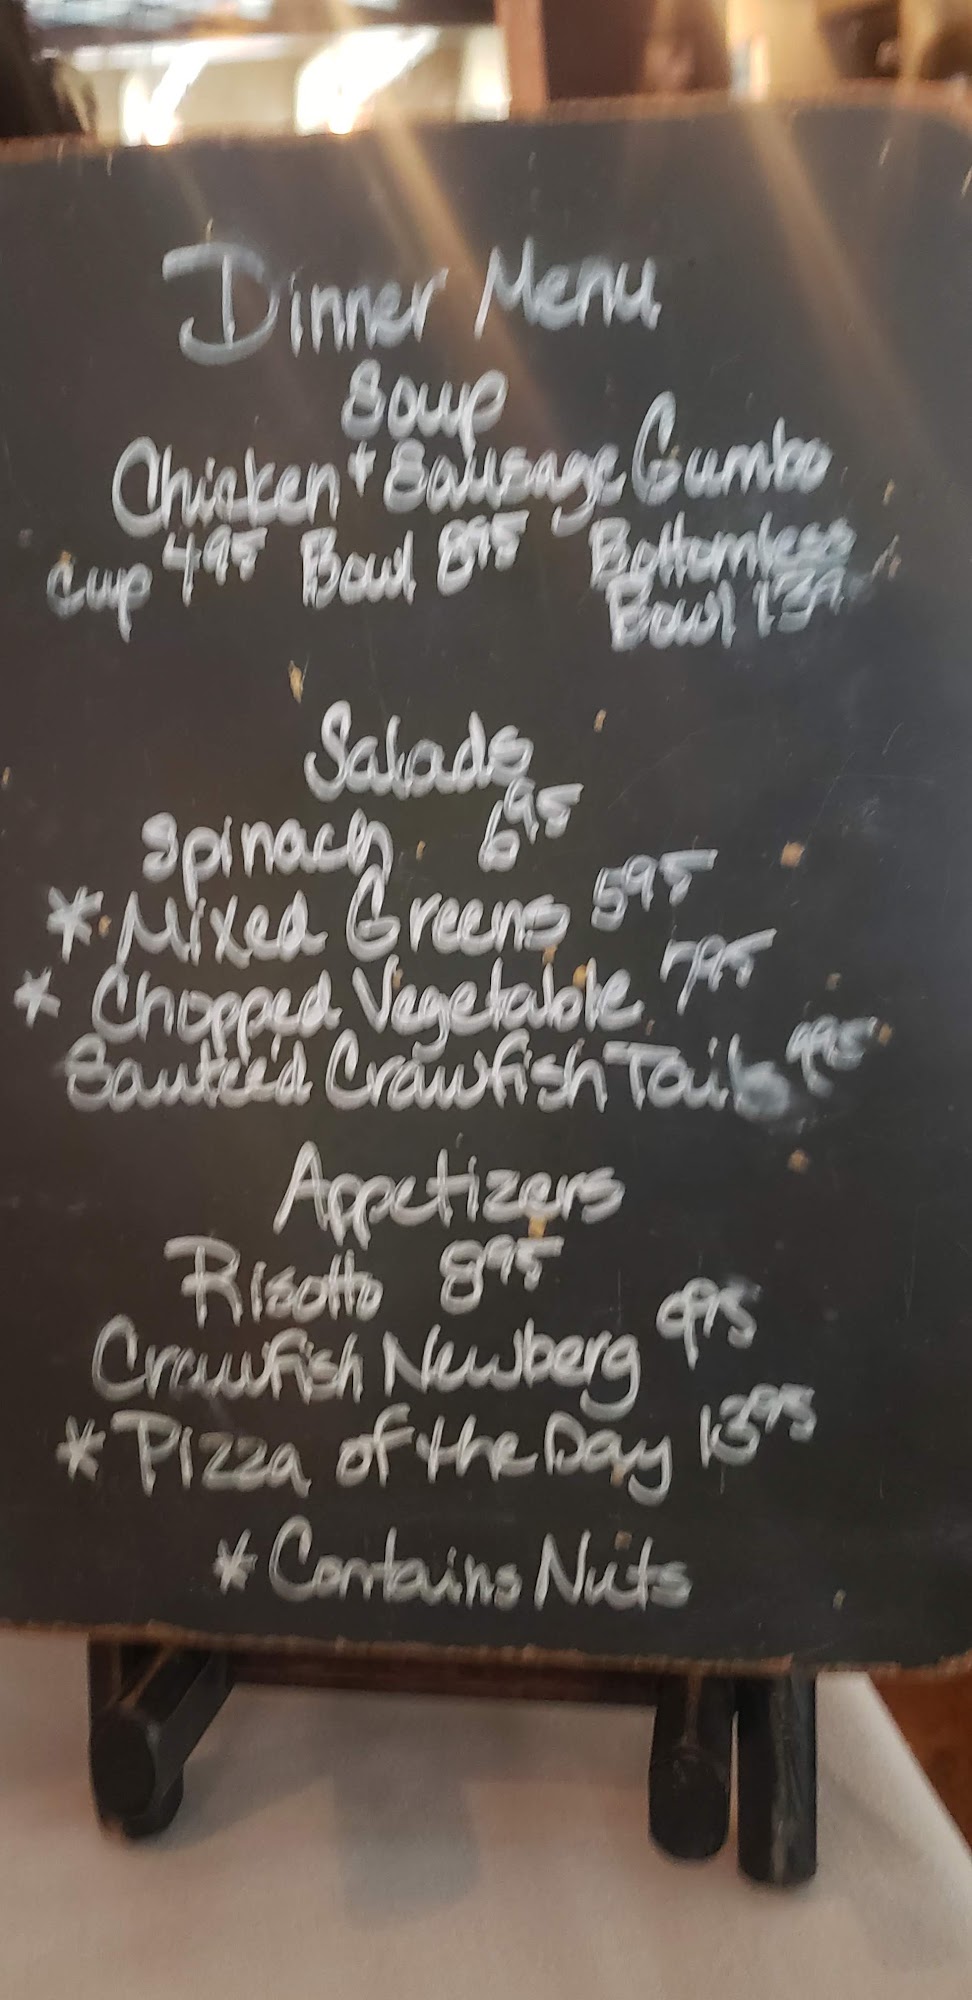 Dinner Menu
Soup
Chicken + Sausage Gumbo
Cup 4.95 Bowl 8.95 Bottomless
Bowl
Salads
Spinach 6.95
* Mixed Greens 5.95
* Chopped Vegetable 7.95
Sauteéd Crawfish Tails 9.95
Appetizers
Risotto 8.95
Crawfish Newberg 9.95
* Pizza of the Day 13.95
* Contains Nuts